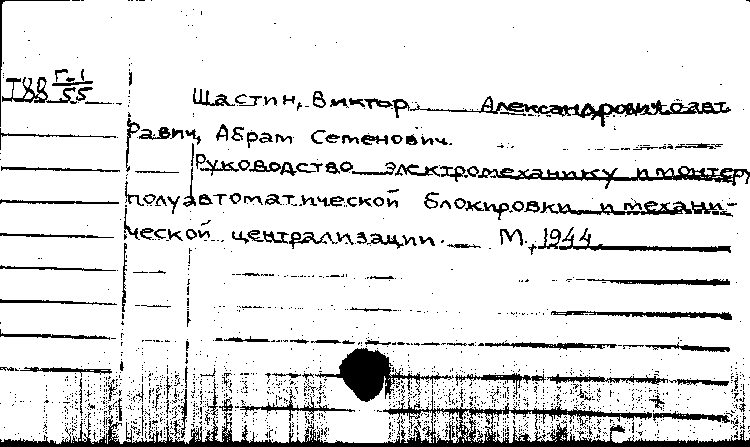 Т88 Г-1
55
Шастин, Виктор Александрович, соавт
Равич, Абрам Семенович.
Руководство электромеханику и монтеру
полуавтоматической блокировки и механи-
ческой централизации. М., 1944